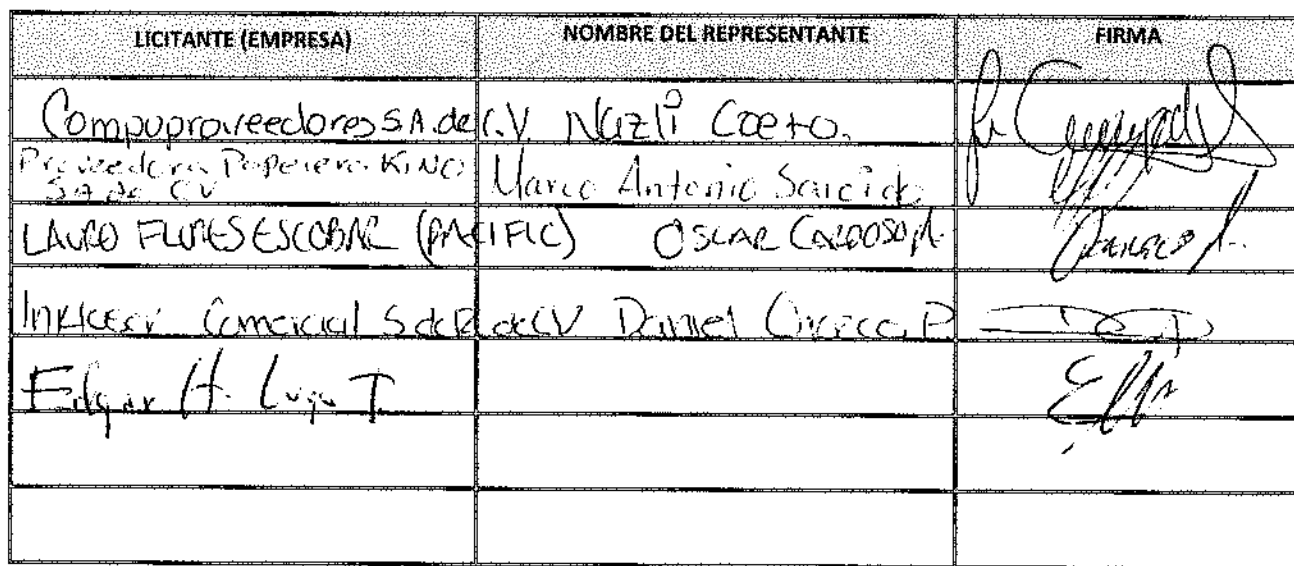 LICITANTE (EMPRESA) NOMBRE DEL REPRESENTANTE FIRMA
Compuproveedores S.A. de C.V Nazli Coeto.
Proveedora Papelera KINO
SA de CV Marco Antonio Salcido
LAURO FLORES ESCOBAR (PACIFIC) OSCAR CARDOSO M.
Comercial S de R de CV Daniel
Edgar H. Lugo T